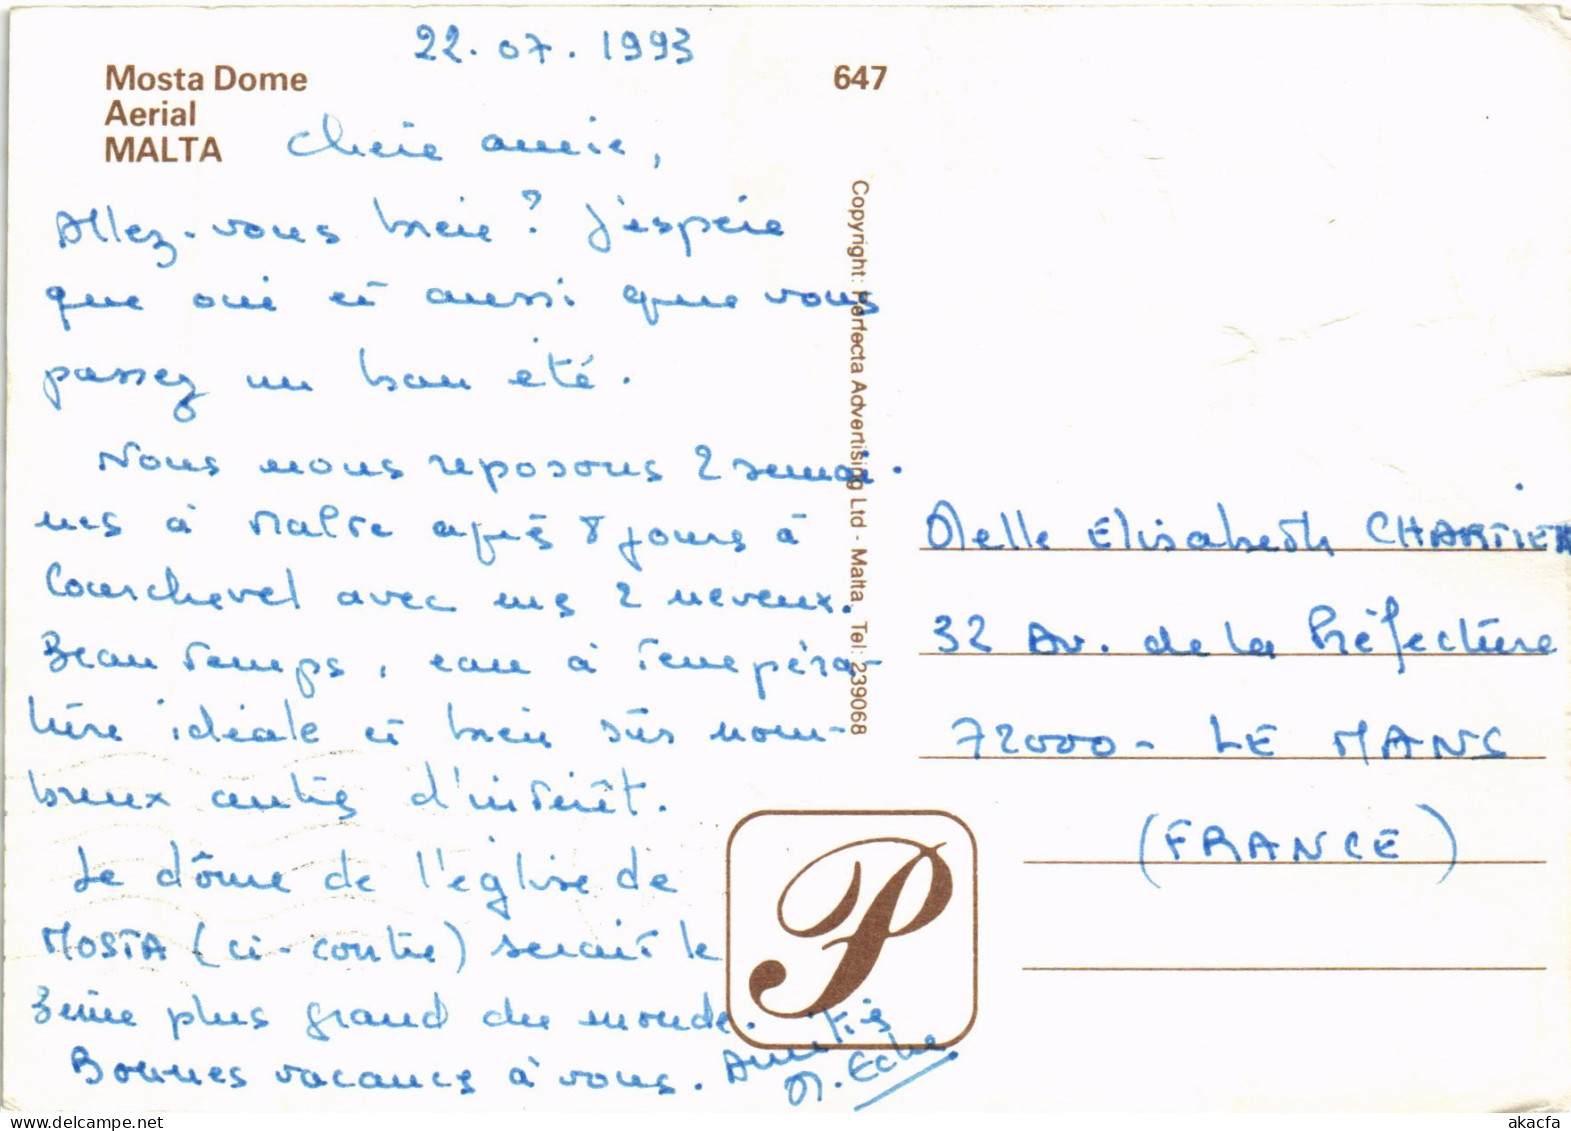 22.07.1993
Mosta Dome
Aerial
MALTA
647
Chère amie,
Allez-vous bien ? J'espère
que oui et aussi que vous
passez un bon été.
Nous nous reposons 2 semai-
nes à Malte après 8 jours à
Courchevel avec nos 2 neveux.
Beau temps, eau à tempéra-
ture idéale et bien sûr nom-
breux centres d'intérêt.
Le dôme de l'église de
MOSTA (ci-contre) serait le
3ème plus grand du monde.
Bonnes vacances à vous.
Amitiés
M. Eche
Copyright: Perfecta Advertising Ltd - Malta, Tel: 239068
Melle Elisabeth CHARTIER
32 Av. de la Préfecture
72000 - LE MANS
(FRANCE)
P
akacfa